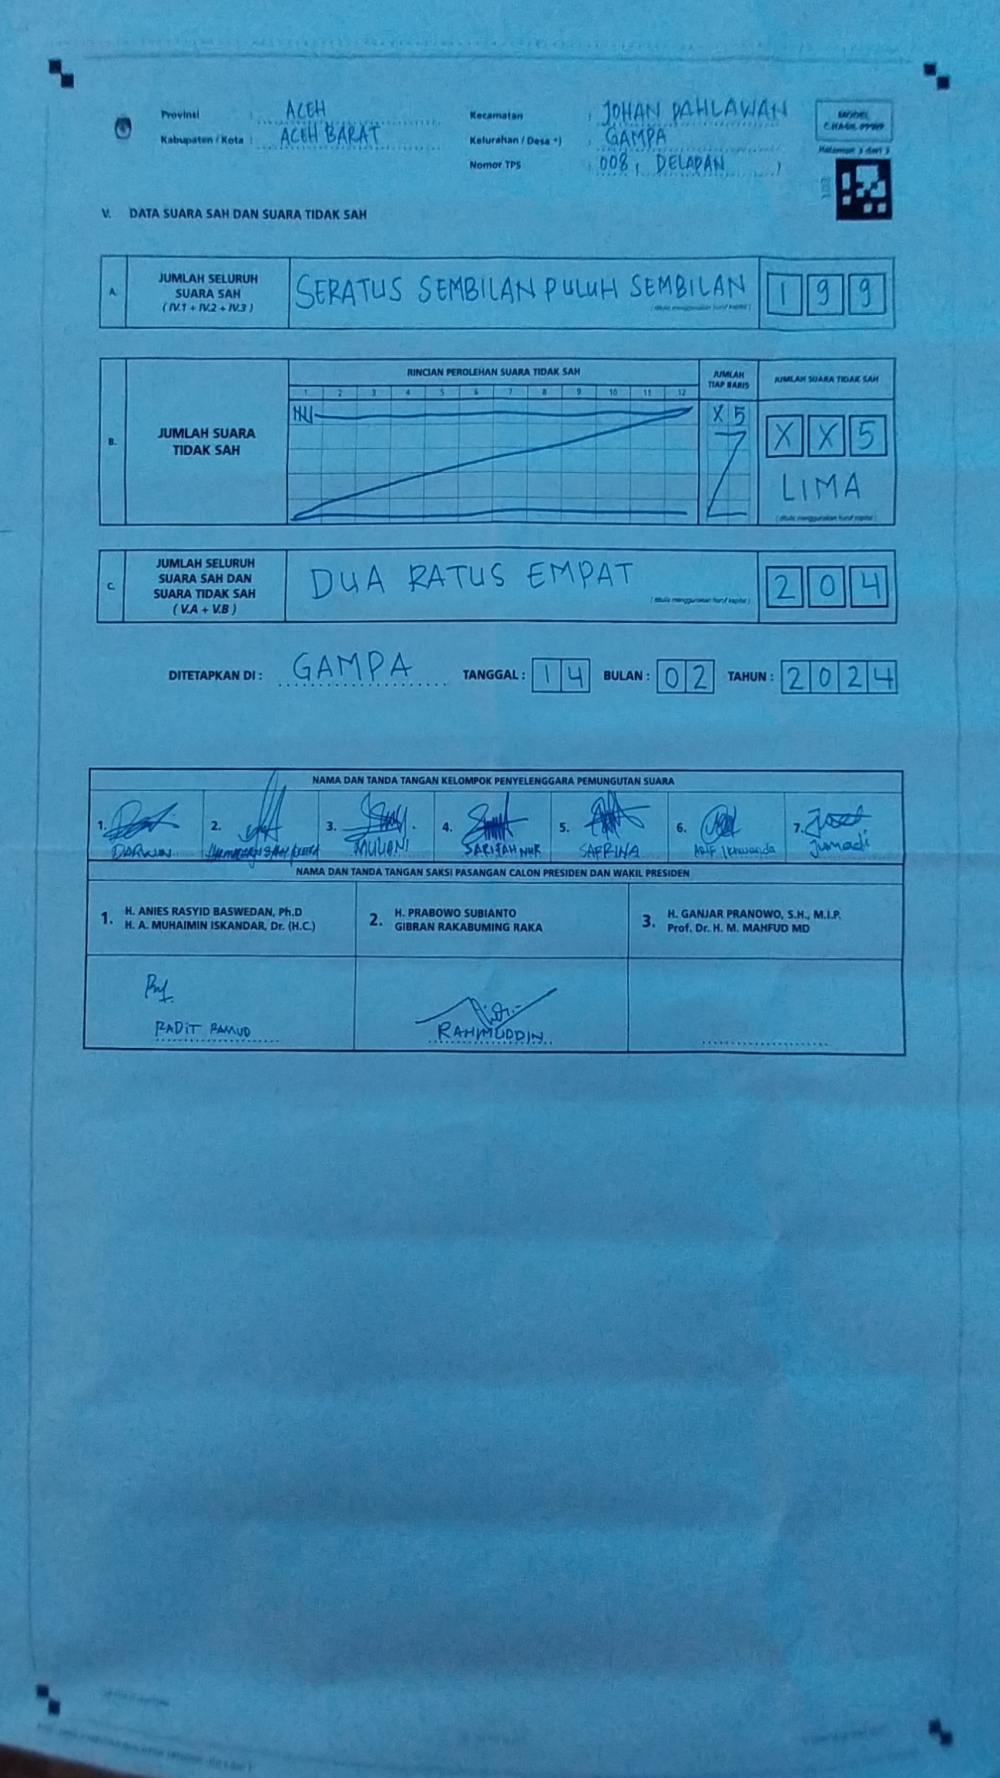 Provinsi : ACEH
Kabupaten / Kota : ACEH BARAT
Kecamatan : JOHAN PAHLAWAN
Kelurahan / Desa *) : GAMPA
Nomor TPS : 008, DELAPAN
MODEL
C.HASIL-PPWP
Halaman 3 dari 3
V. DATA SUARA SAH DAN SUARA TIDAK SAH
A. JUMLAH SELURUH SUARA SAH ( IV.1 + IV.2 + IV.3 ) SERATUS SEMBILAN PULUH SEMBILAN 1 9 9
( ditulis menggunakan huruf kapital )
RINCIAN PEROLEHAN SUARA TIDAK SAH JUMLAH TIAP BARIS JUMLAH SUARA TIDAK SAH
1 2 3 4 5 6 7 8 9 10 11 12
B. JUMLAH SUARA TIDAK SAH X 5 X X 5
LIMA
( ditulis menggunakan huruf kapital )
C. JUMLAH SELURUH SUARA SAH DAN SUARA TIDAK SAH ( V.A + V.B ) DUA RATUS EMPAT 2 0 4
( ditulis menggunakan huruf kapital )
DITETAPKAN DI : GAMPA TANGGAL : 1 4 BULAN : 0 2 TAHUN : 2 0 2 4
NAMA DAN TANDA TANGAN KELOMPOK PENYELENGGARA PEMUNGUTAN SUARA
1. 2. 3. 4. 5. 6. 7.
DARWIN MULIANI SARIFAH NUR SAFRINA ARIF Jumadi
NAMA DAN TANDA TANGAN SAKSI PASANGAN CALON PRESIDEN DAN WAKIL PRESIDEN
1. H. ANIES RASYID BASWEDAN, Ph.D
H. A. MUHAIMIN ISKANDAR, Dr. (H.C.)
2. H. PRABOWO SUBIANTO
GIBRAN RAKABUMING RAKA
3. H. GANJAR PRANOWO, S.H., M.I.P.
Prof. Dr. H. M. MAHFUD MD
RADIT RAMUD
RAHMUDDIN